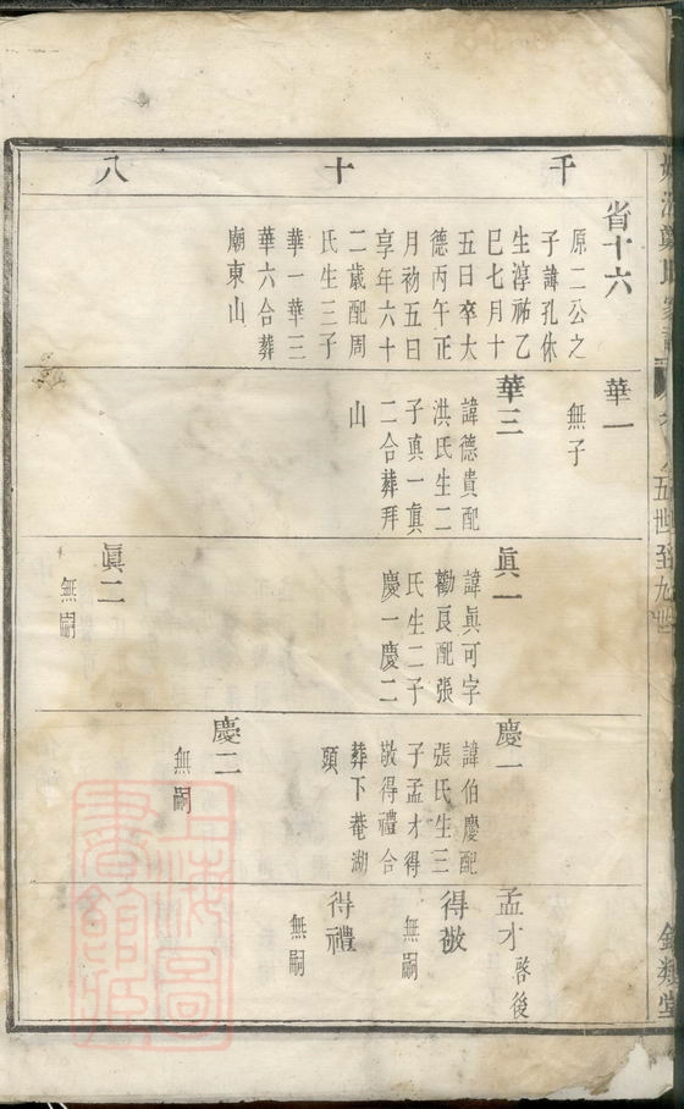 千十八
省十六
原二公之
子諱孔休
生淳祐乙
巳七月十
五日卒大
德丙午正
月初五日
享年六十
二歲配周
氏生三子
華一華三
華六合葬
廟東山
華一
無子
華三
諱德貴配
洪氏生二
子真一真
二合葬拜
山
眞一
諱眞可字
勸良配張
氏生二子
慶一慶二
眞二
無嗣
慶一
諱伯慶配
張氏生三
子孟才得
敬得禮合
葬下菴湖
頭
慶二
無嗣
孟才
啓後
得敬
無嗣
得禮
無嗣
五世至九世
類堂
上海圖
書館藏